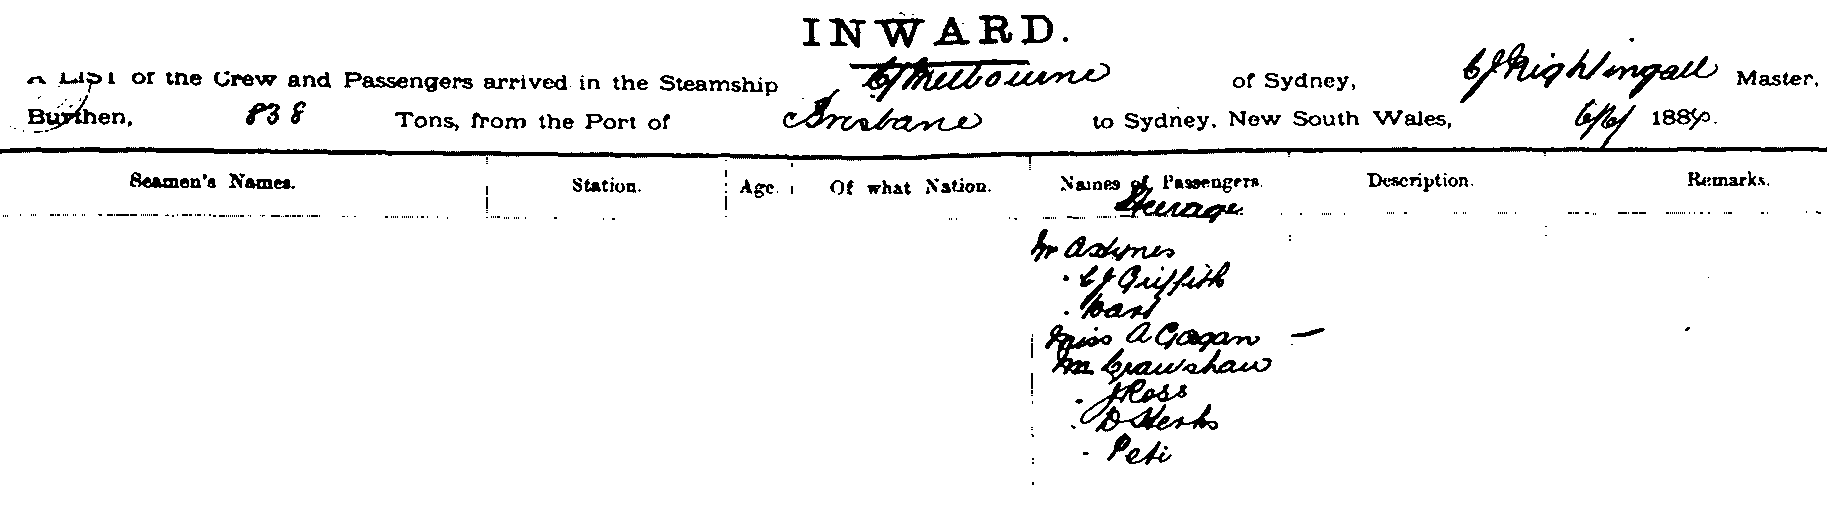 INWARD.
A LIST of the Crew and Passengers arrived in the Steamship C/Melbourne of Sydney, CJ Nightingall Master,
Burthen, 838 Tons, from the Port of Brisbane to Sydney, New South Wales, 6/6/ 188
Seamen's Names. Station. Age. Of what Nation. Names of Passengers. Description. Remarks.
Steerage
Mr
" CJ Griffith
" Hart
Miss A Gagan —
Mr Crawshaw
" J Ross
" D
" Peti